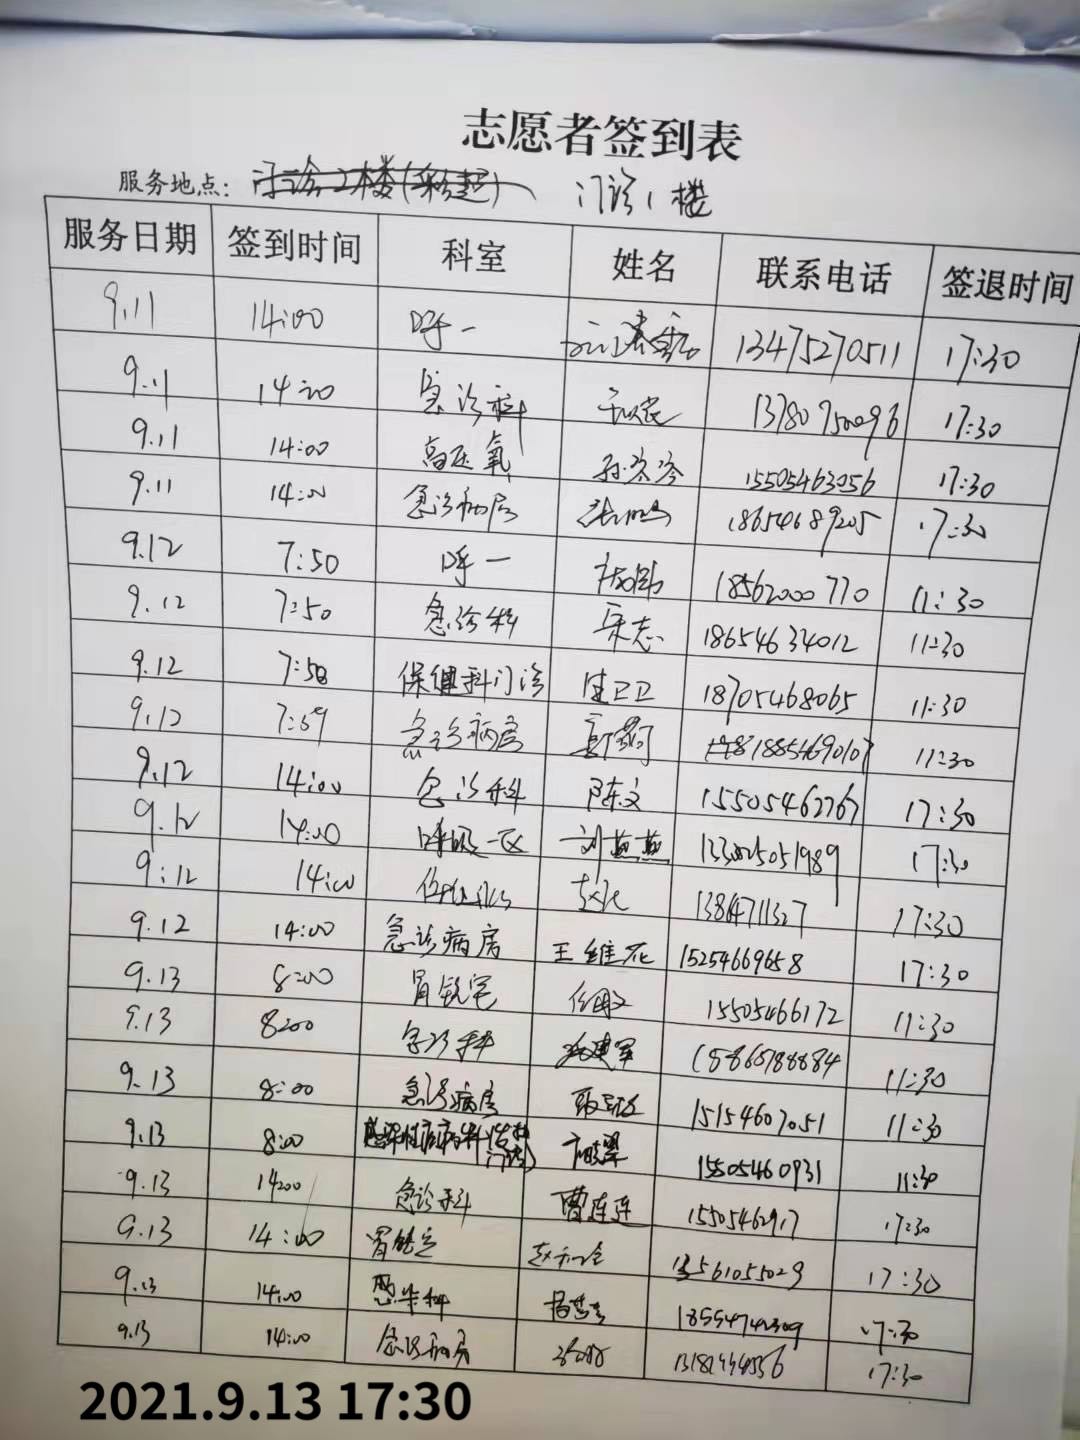 志愿者签到表
服务地点: 门诊2楼(彩超) 门诊1楼
服务日期 签到时间 科室 姓名 联系电话 签退时间
9.11 14:00 呼一 13475270511 17:30
9.11 14:00 急诊科 13780750096 17:30
9.11 14:00 高压氧 15505463056 17:30
9.11 14:00 急诊病房 18654689205 17:30
9.12 7:50 呼一 18562000770 11:30
9.12 7:50 急诊科 宋志 18654634012 11:30
9.12 7:58 保健科门诊 卫卫 18705468065 11:30
9.12 7:59 急诊病房 18854690107 11:30
9.12 14:00 急诊科 陈文 15505462767 17:30
9.12 14:00 呼吸一区 刘燕燕 17:30
9:12 14:00 13864711327 17:30
9.12 14:00 急诊病房 王维花 15254669658 17:30
9.13 8:00 胃镜室 15505466172 11:30
9.13 8:00 急诊科 建军 18865788884 11:30
9.13 8:00 急诊病房 15154607051 11:30
9.13 8:00 15505460931 11:30
9.13 14:00 急诊科 曹连连 15505462917 17:30
9.13 14:00 胃镜室 13561055029 17:30
9.13 14:00 感染科 17:30
9.13 14:00 急诊病房 17:30
2021.9.13 17:30